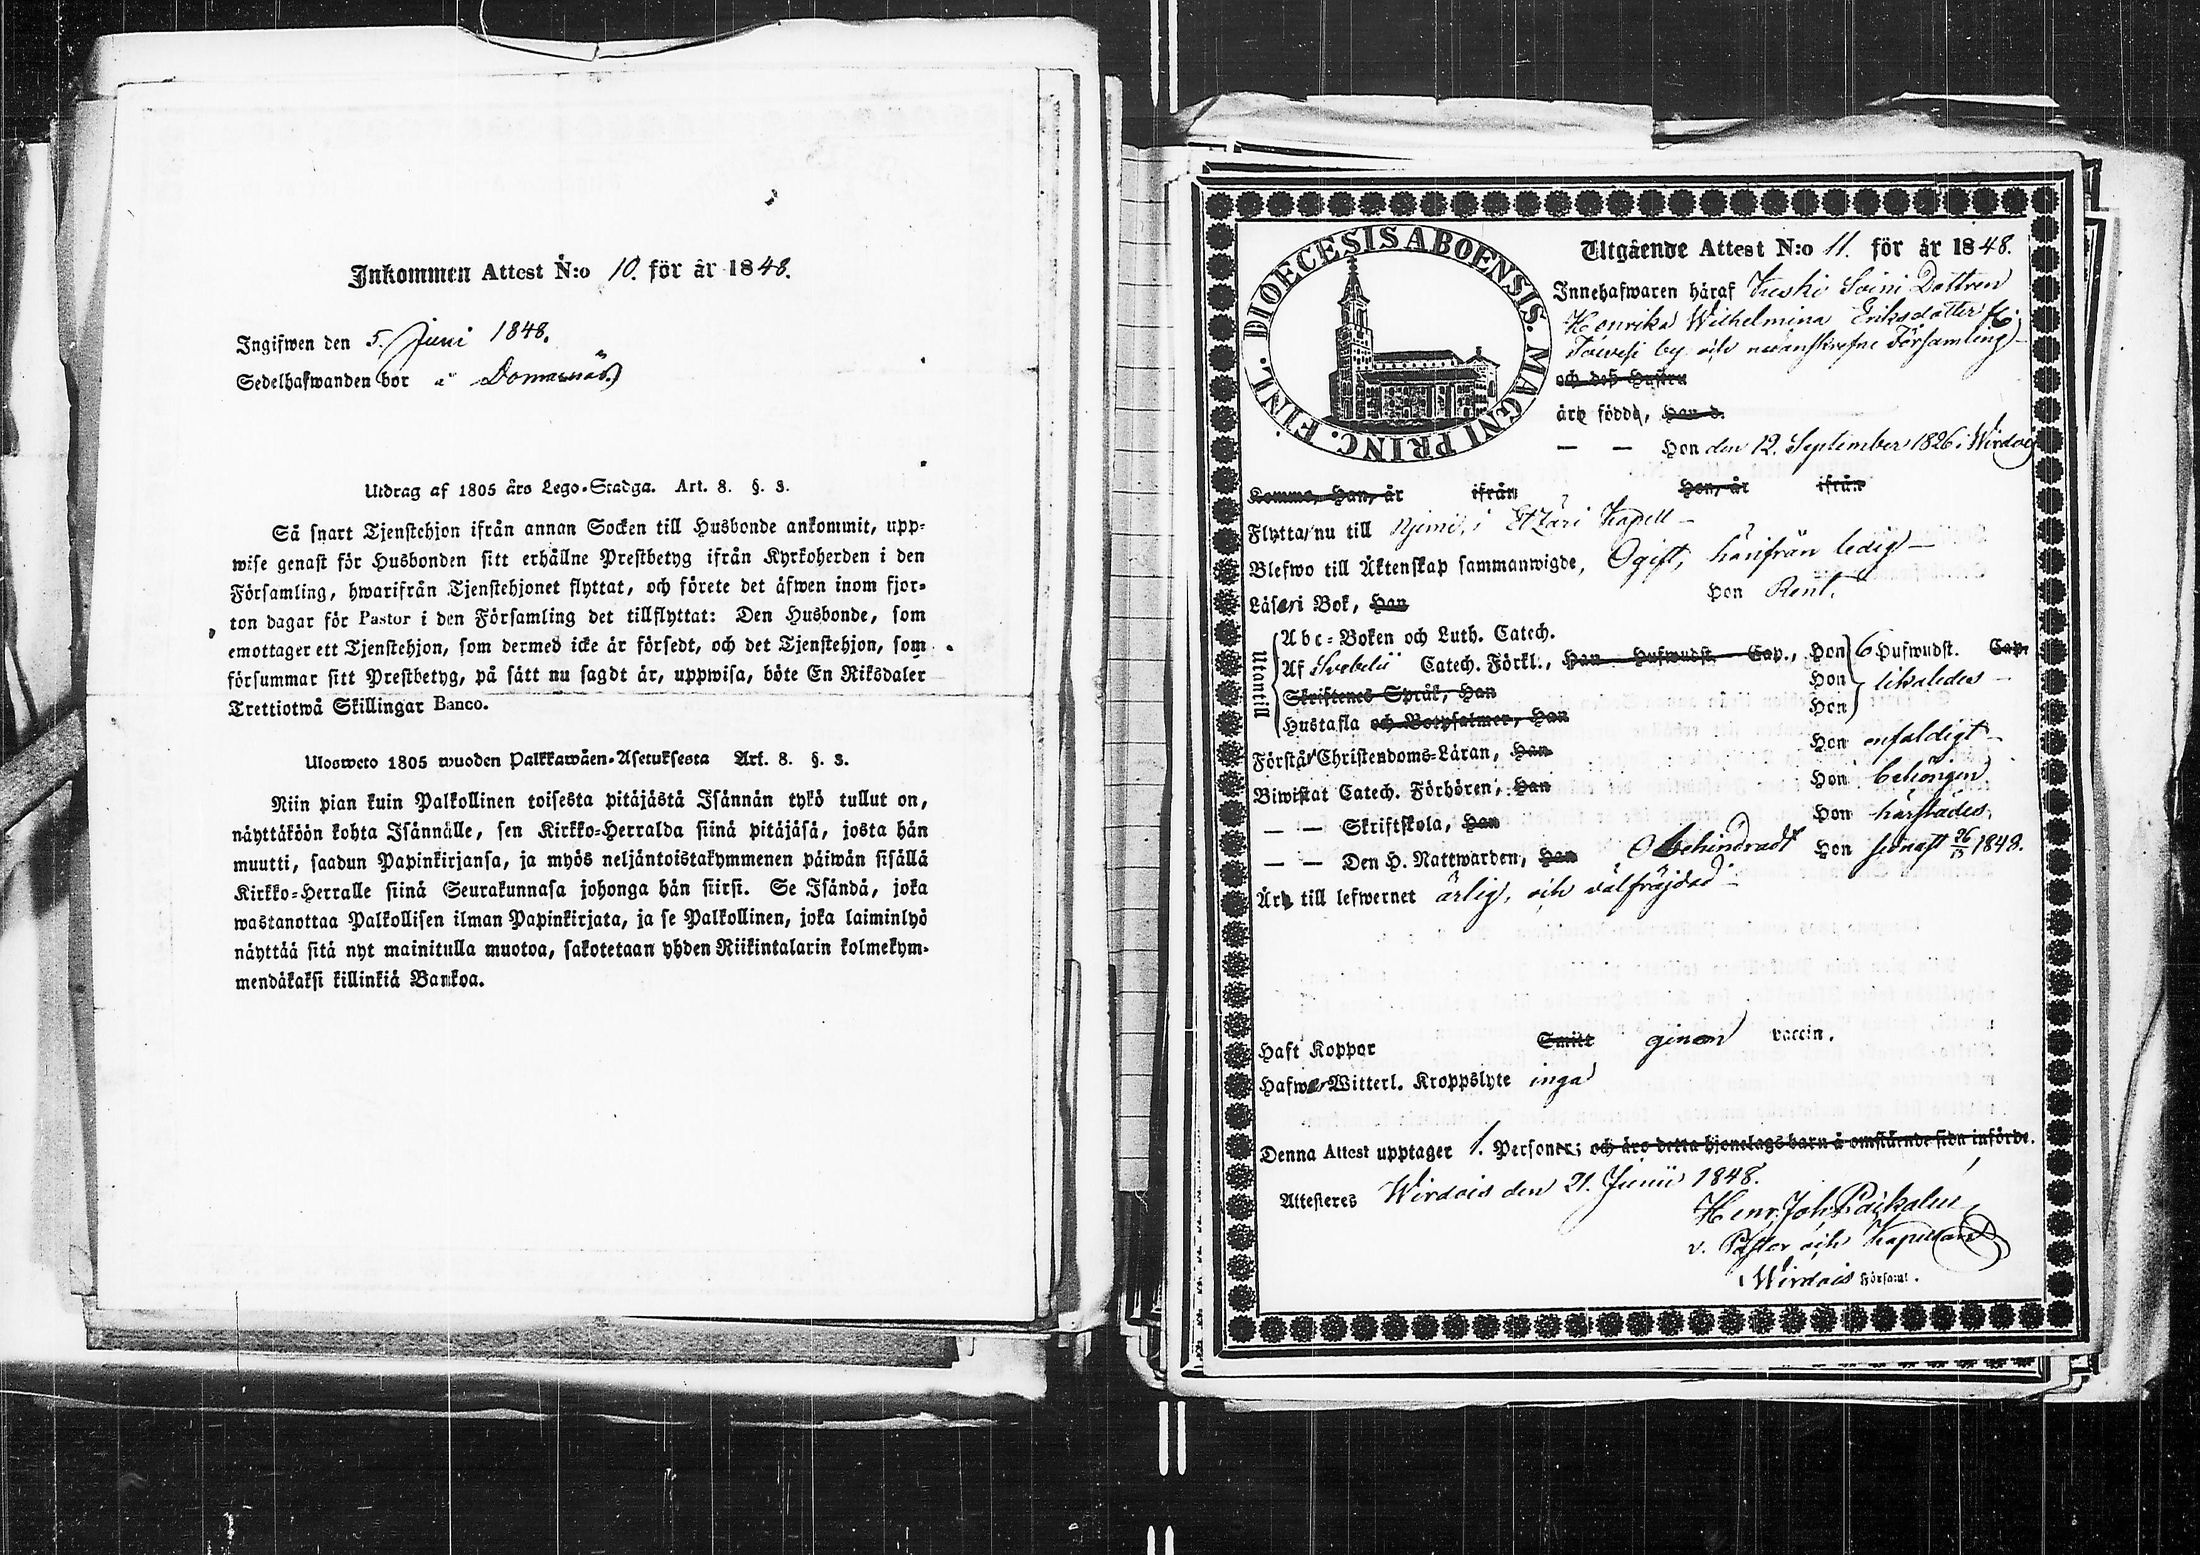 Inkommen Attest N:o 10. för år 1848.
Ingifwen den 5. Juni 1848.
Sedelhafwanden bor å Domarnäs.
Utdrag af 1805 års Lego-Stadga. Art. 8. §. 3.
Så snart Tjenstehjon ifrån annan Socken till Husbonde ankommit, upp-
wise genast för Husbonden sitt erhållne Prestbetyg ifrån Kyrkoherden i den
Församling, hwarifrån Tjenstehjonet flyttat, och förete det äfwen inom fjor-
ton dagar för Pastor i den Församling det tillflyttat: Den Husbonde, som
emottager ett Tjenstehjon, som dermed icke är försedt, och det Tjenstehjon, som
försummar sitt Prestbetyg, på sätt nu sagdt är, uppwisa, böte En Riksdaler
Trettiotwå Skillingar Banco.
Ulosweto 1805 wuoden Palkkawäen-Asetuksesta Art. 8. §. 3.
Niin pian kuin Palkollinen toisesta pitäjästä Isännän tykö tullut on,
näyttäköön kohta Isännälle, sen Kirkko-Herralda siinä pitäjäsä, josta hän
muutti, saadun Papinkirjansa, ja myös neljäntoistakymmenen päiwän sisällä
Kirkko-Herralle siinä Seurakunnasa johonga hän siirsi. Se Isändä, joka
wastanottaa Palkollisen ilman Papinkirjata, ja se Palkollinen, joka laiminlyö
näyttää sitä nyt mainitulla muotoa, sakotetaan yhden Riikintalarin kolmekym-
mendäkaksi killinkiä Bankoa.
DIOECESIS ABOENSIS. MAGNI PRINC. FINL.
Utgående Attest N:o 11. för år 1848.
Innehafwaren häraf Soini Dottren
Henrika Wilhelmina Eriksdotter
by och Församling
och deß Hustru
äro födde, Han d.
— — Hon den 12. September 1826 i Wirdois
Komne, Han, år ifrån Hon, år ifrån
Flytta nu till i Etzäri Kapell —
Blefwo till Äktenskap sammanwigde, Ogift, härifrån ledig —
Läsa i Bok, Han Hon Rent.
Utantill
Abc-Boken och Luth. Catech.
Af Svebelii Catech. Förkl., Han Hufwudst. Cap., Hon 6 Hufwudst. Cap.
Skriftenes Språk, Han Hon likaledes —
Hustafla och Botpsalmer, Han Hon
Förstå Christendoms-Läran, Han Hon enfaldigt —
Biwistat Catech. Förhören, Han Hon behörigen
— — Skriftskola, Han Hon härstädes.
— — Den H. Nattwarden, Han Obehindradt Hon senast 1848.
Äro till lefwernet ärlig, och välfräjdad —
Haft Koppor Smitt genom vaccin.
Hafwa Witterl. Kroppslyte inga
Denna Attest upptager 1. Personer; och äro detta hjonelags barn å omstående sida införde.
Attesteres Wirdois den 21. Junii 1848.
Henr. Joh.
v. Pastor och Kapellan
i Wirdois Församl.